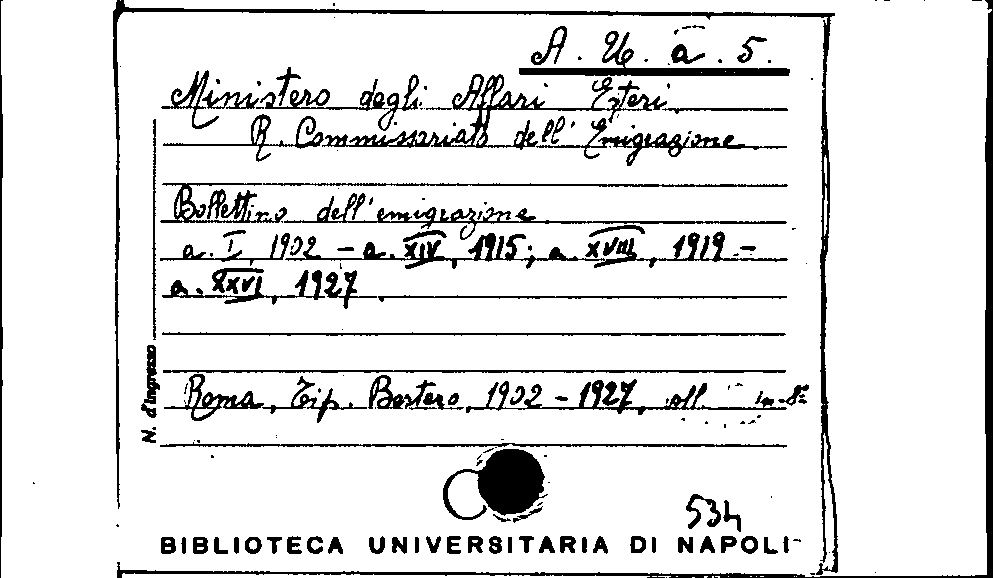 A. U. a. 5.
Ministero degli Affari Esteri.
R. Commissariato dell' Emigrazione.
Bollettino dell'emigrazione
a. I, 1902 - a. XIV, 1915; a. XVIII, 1919 -
a. XXVI, 1927.
Roma, Tip. Bertero, 1902 - 1927, in-8º
N. d'Ingresso
534
BIBLIOTECA UNIVERSITARIA DI NAPOLI